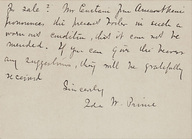 for sale? Mr. Curtain
pronounces the present Boiler in such a
worn out condition, that it can not be
mended. If you can give the
any suggestions, they will be gratefully
received
Sincerely
Ida W. Prime